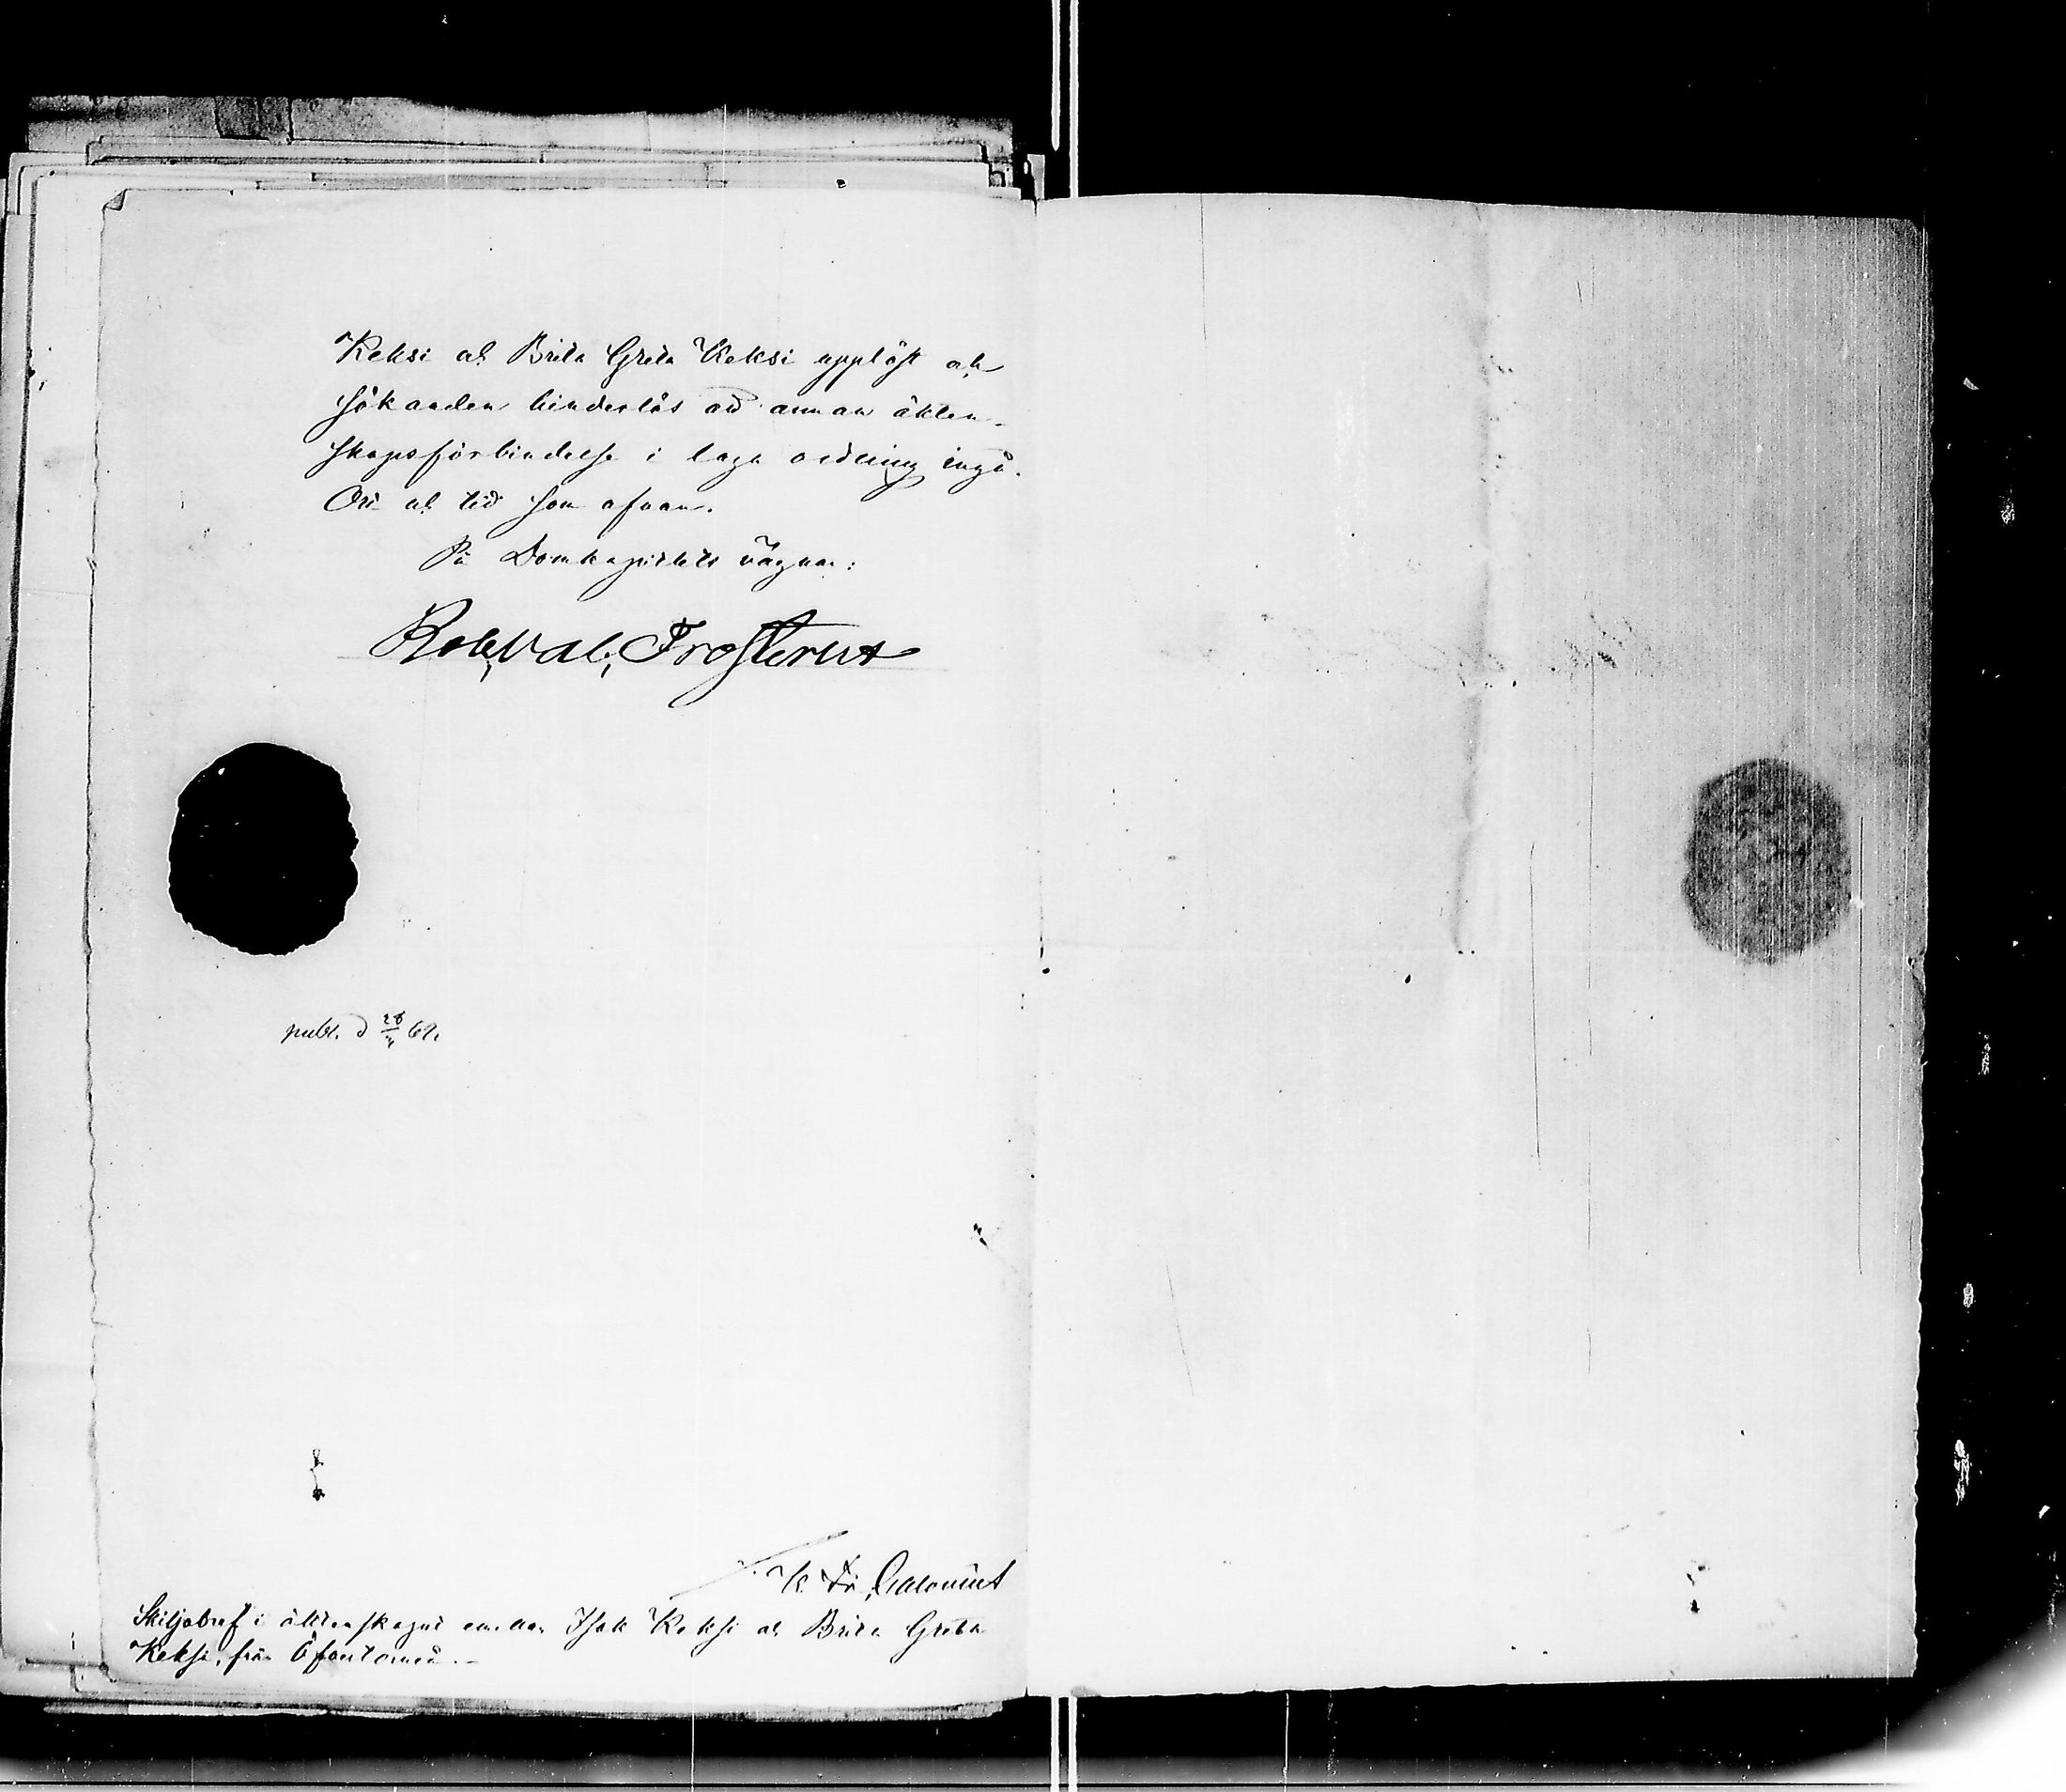 Keksi och Brita Greta Keksi upplöst och
sökanden hinderlös att annan äkten-
skapsförbindelse i laga ordning ingå.
Ort och tid som ofvan.
På Domkapitlets vägnar:
Rob. Val. Frosterus
publ. d 28/ 62.
Skiljobref i äktenskapet emellan Isak Keksi och Brita Greta
Keksi, från Öfvertorneå.